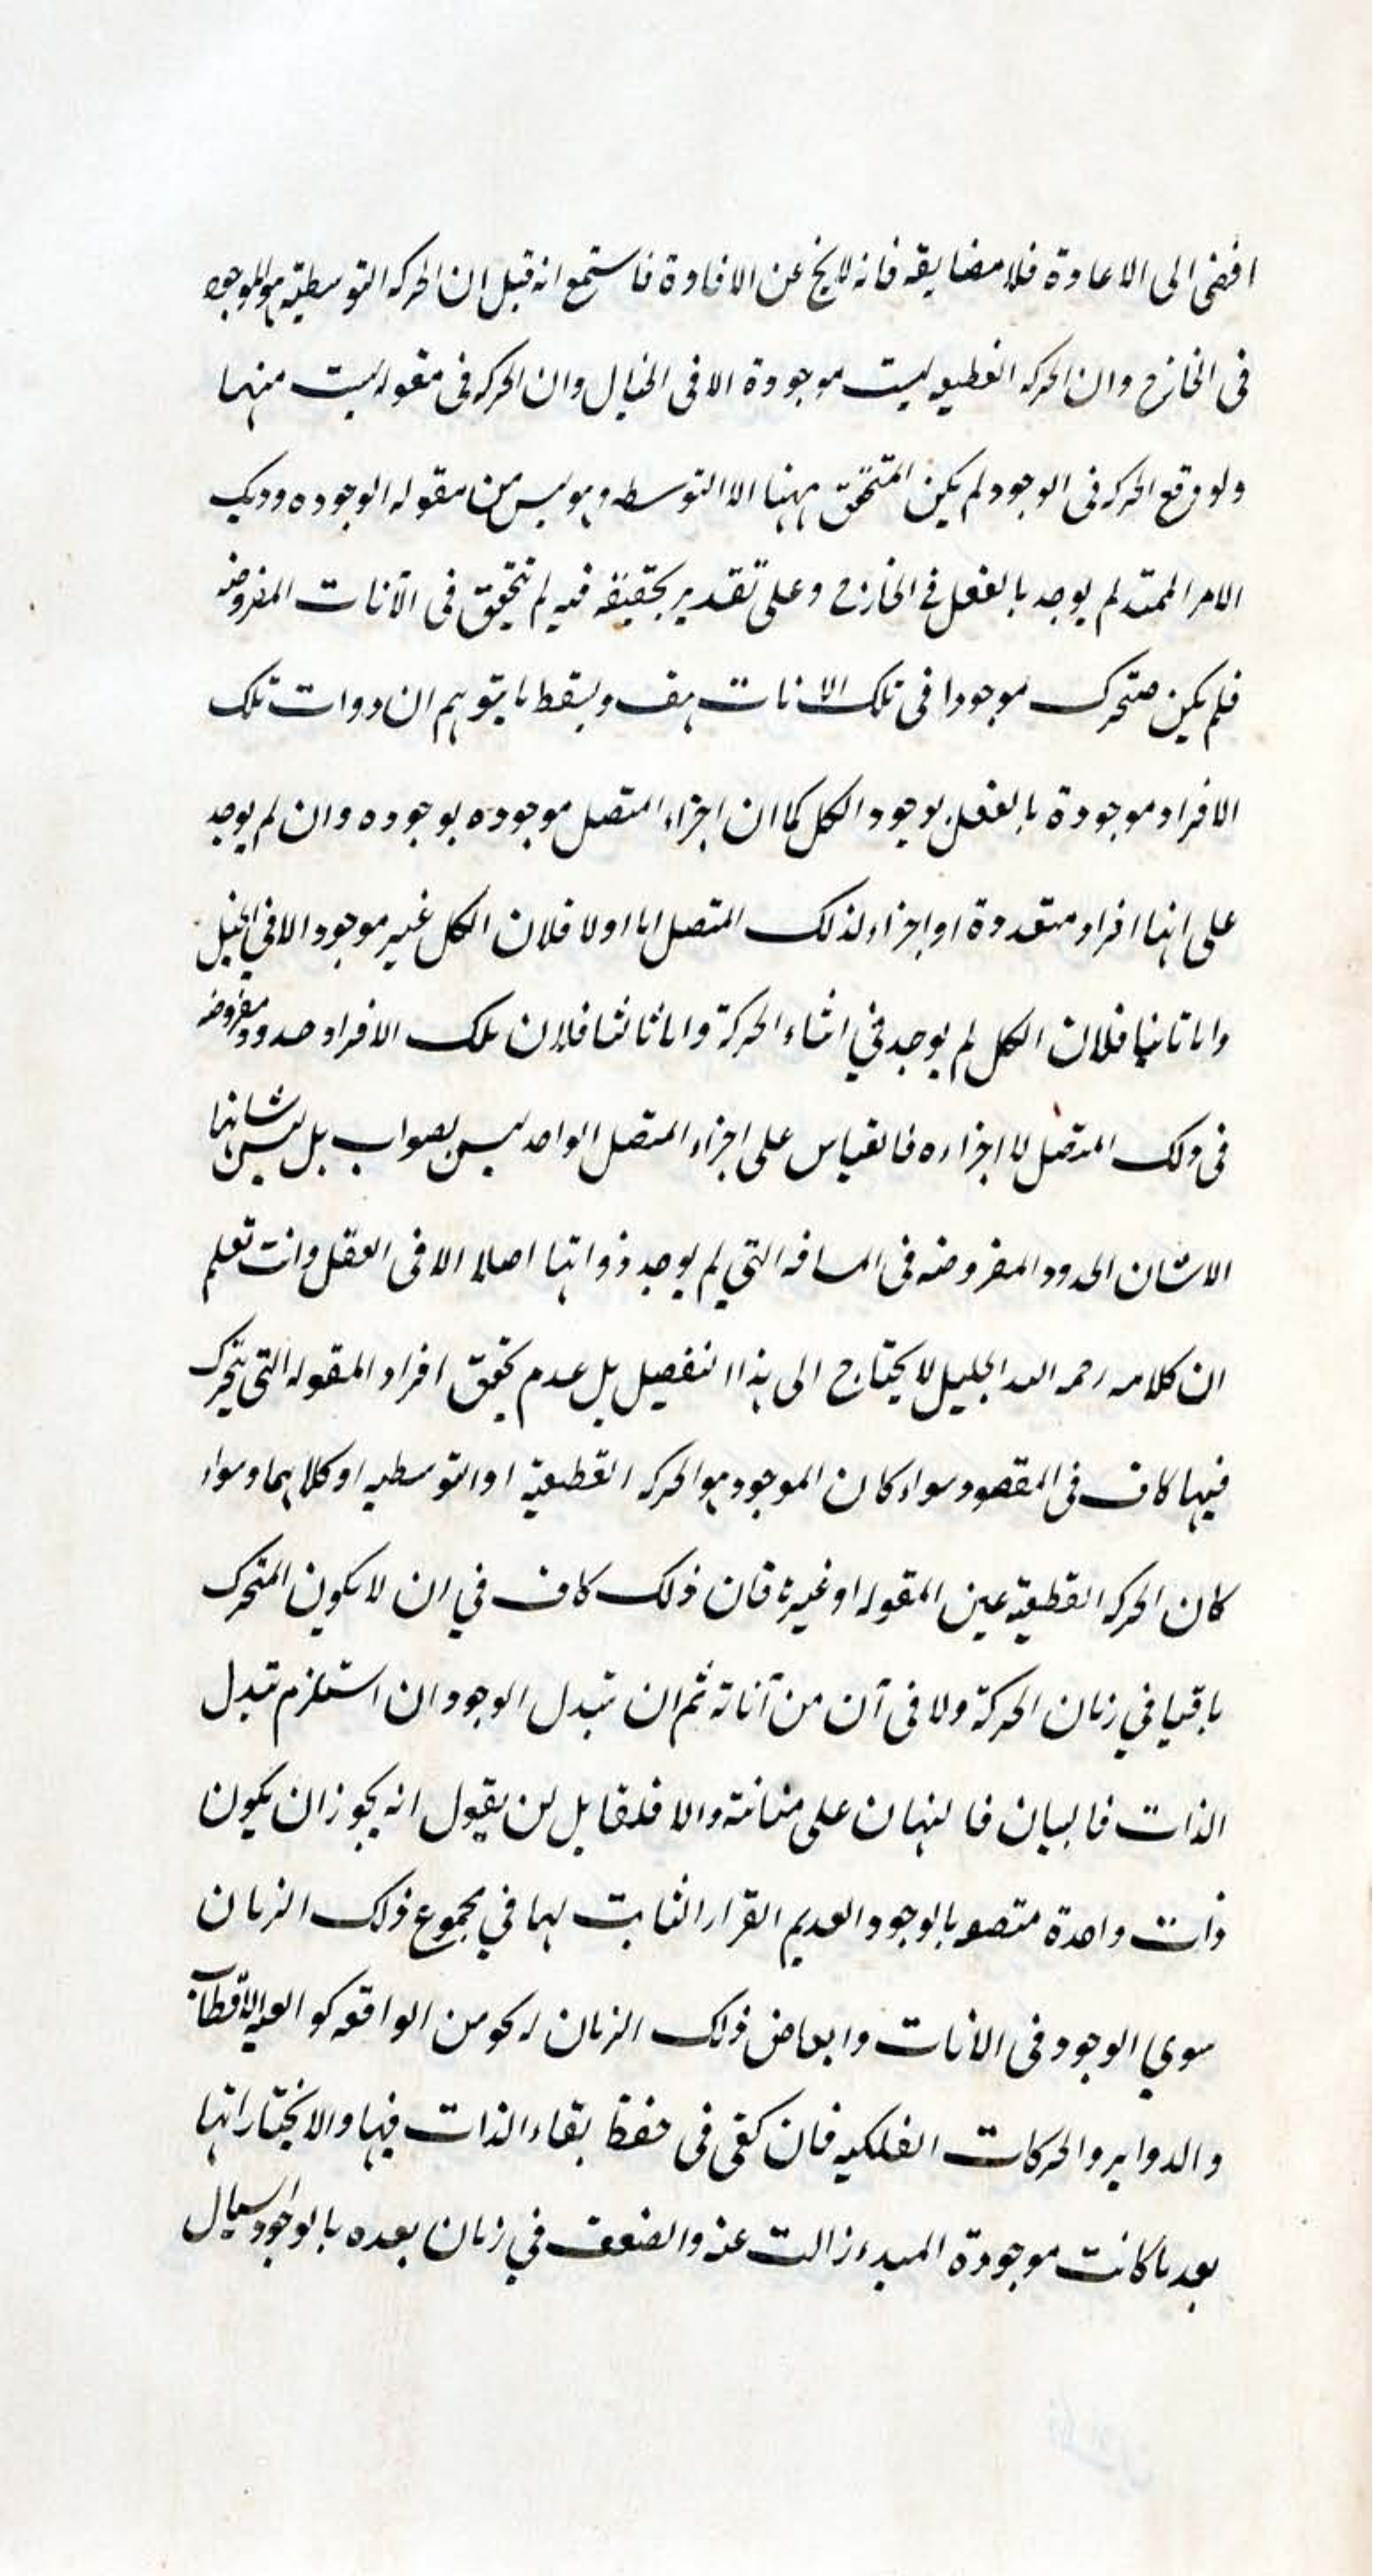 افضى الى الاعادة فلا مضايقه فانه لا يخ عن الافادة فاستمع انه قيل ان الحركه التوسطيه هو الموجود
فى الخارج وان الحركه القطعيه ليست موجودة الا فى الخيال وان الحركه فى مقوله ليست منها
ولو وقع الحركه فى الوجود لم يكن المتحقق ههنا الا التوسط وهو ليس من مقوله الوجود وذلك
الامر الممتد لم يوجد بالفعل فى الخارج وعلى تقدير تحققه فيه لم يتحقق فى الآنات المفروضه
فلم يكن متحرك موجودا فى تلك الانات هف ويسقط ما يتوهم ان ذوات تلك
الافراد موجودة بالفعل بوجود الكل كما ان اجزاء المتصل موجوده بوجوده وان لم يوجد
على انها افراد متعددة او اجزاء لذلك المتصل اما اولا فلان الكل غير موجود الا فى الخيال
واما ثانيا فلان الكل لم يوجد في اثناء الحركة واما ثالثا فلان تلك الافراد حدود مفروضه
فى ذلك المتصل لا اجزاءه فالقياس على اجزاء المتصل الواحد ليس بصواب بل ليس شانها
الا شان الحدود المفروضه فى المسافه التي لم يوجد ذواتها اصلا الا فى العقل وانت تعلم
ان كلامه رحمه الله الجليل لا يحتاج الى هذا التفصيل بل عدم تحقق افراد المقوله التى يتحرك
فيها كاف فى المقصود سواء كان الموجود هو الحركه القطعية او التوسطيه او كلاهما وسواء
كان الحركه القطعية عين المقوله او غيرها فان ذلك كاف في ان لا يكون المتحرك
باقيا في زمان الحركة ولا فى آن من آناته ثم ان تبدل الوجود ان استلزم تبدل
الذات فالبيان فالبنيان على متانته والا فلقايل لن يقول انه يجوز ان يكون
ذات واحدة متصف بالوجود العديم القرار الثابت لها في مجموع ذلك الزمان
سوي الوجود فى الانات وابعاض ذلك الزمان نحو من الواقعه الاقطاب
والدواير والحركات الفلكيه فان كفى فى حفظ بقاء الذات فيها والا يختار انها
بعد ما كانت موجودة المبدء زالت عنه والضعف في زمان بعده بالوجود السيال